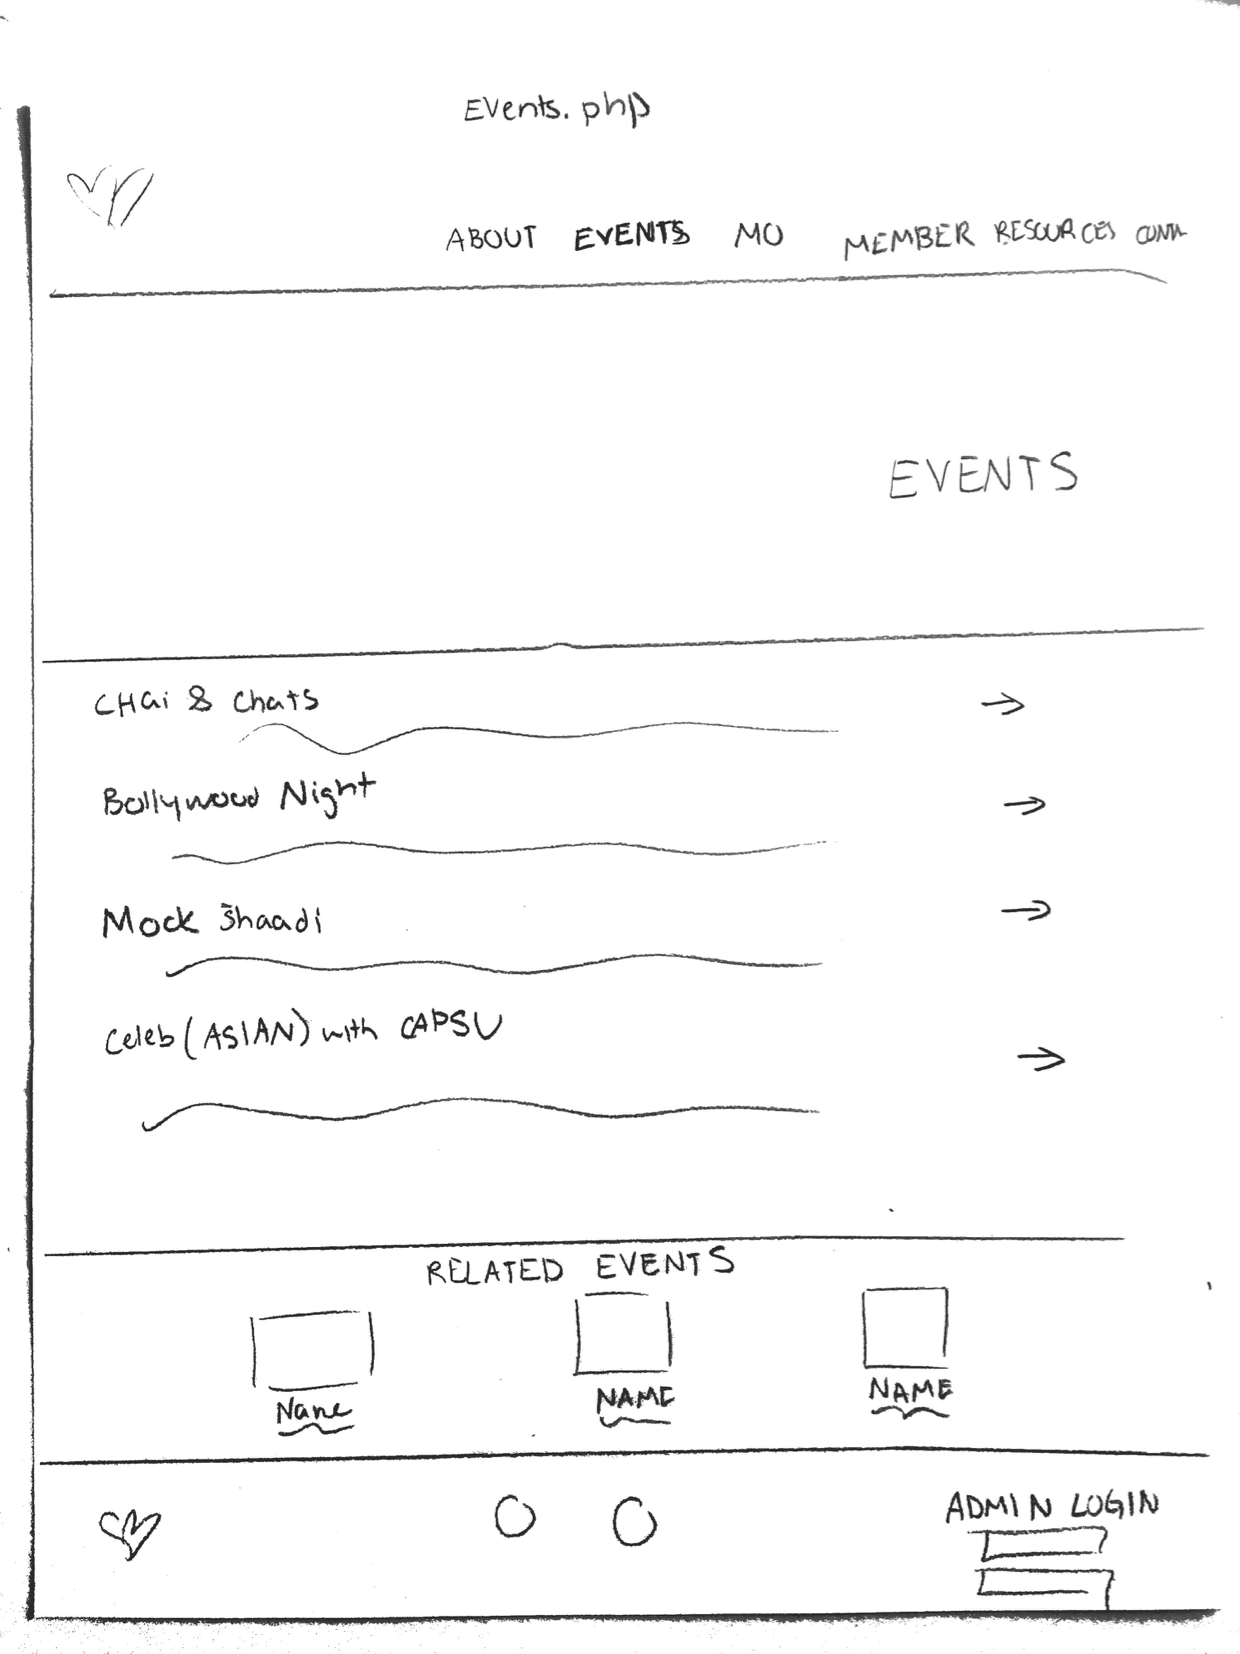 Events.php
ABOUT EVENTS MO MEMBER RESOURCES
EVENTS
CHai & Chats
Bollywood Night
Mock Shaadi
Celeb (ASIAN) with CAPSU
RELATED EVENTS
Name NAME NAME
ADMIN LOGIN